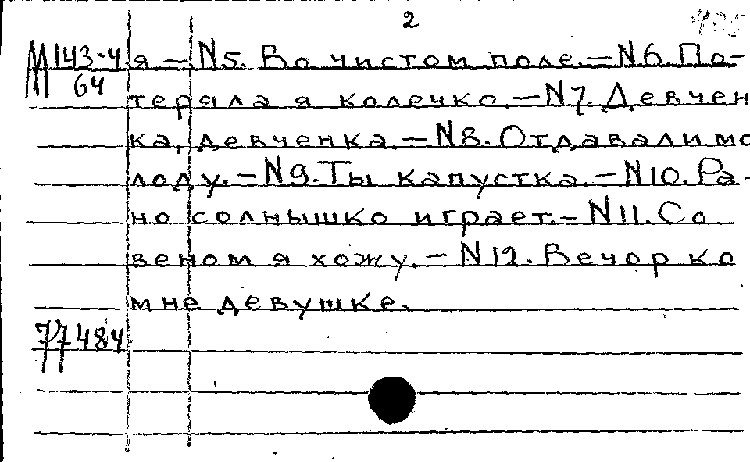 2
М143-4 я – N5. Во чистом поле. – N6. По-
64
теряла я колечко. – N7. Девчен
ка, девченка. – N8. Отдавали мо
лоду. – N9. Ты капустка. – N10. Ра-
но солнышко играет. – N11. Со
веном я хожу. – N12. Вечор ко
мне девушке.
77484